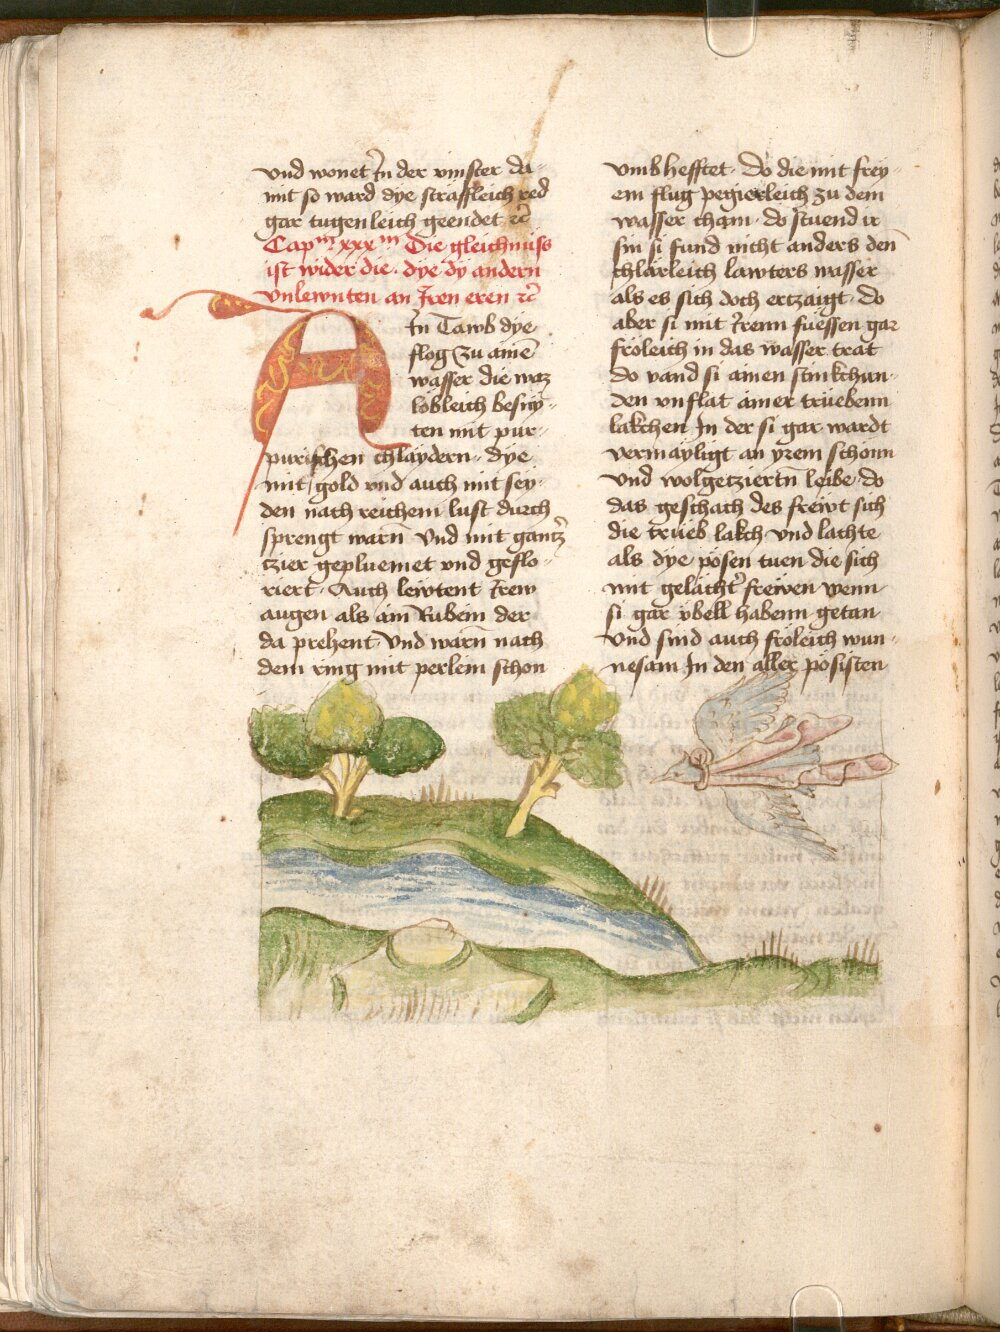 vnd wonet Jn der vinster da-
mit so ward dye straffleich red
gar tugenleich geendet ꝛc̄
Capᵐ xxxᵐ Die gleichnüss
ist wider die · dye dy andern
vnlewnten an Jren eren ꝛc̄
AIn Tawb dye
flog zu ainē
wasser die waz
lobleich besny-
ten mit pur-
purischen chlaydern · dye
mit gold vnd auch mit sey-
den nach reichem lust durch
sprengt warn̄ Vnd mit gantzʼ
tzier gepluemet vnd geflo-
riert · Auch lewtent Irew
augen als ain Rubein der
da prehent · Vnd warn̄ nach
dem ring mit perlein schon
vmbhefftet · Do die mit frey-
em flug pegierleich zu dem
wasser cham · do stuend ir
sin si fund nicht anders den
chlärleich lawters wasser
als es sich doch ertzaigt · do
aber si mit Irenn füessen gar
fröleich in das wasser trat
do vand si ainen stinkchun-
den vnflat ainer trüebenn
lakchen Jn der si gar wardt
vermäyligt an yrem schonn
vnd wolgetziertn̄ leibe · do
das geschach des frewt sich
die trüeb lakch vnd lachte
als dye pösen tuen die sich
mit gelächtʼ frewen wenn
si gar vbell habenn getan
Vnd sind auch frölich wun-
nesam Jn den aller pösisten